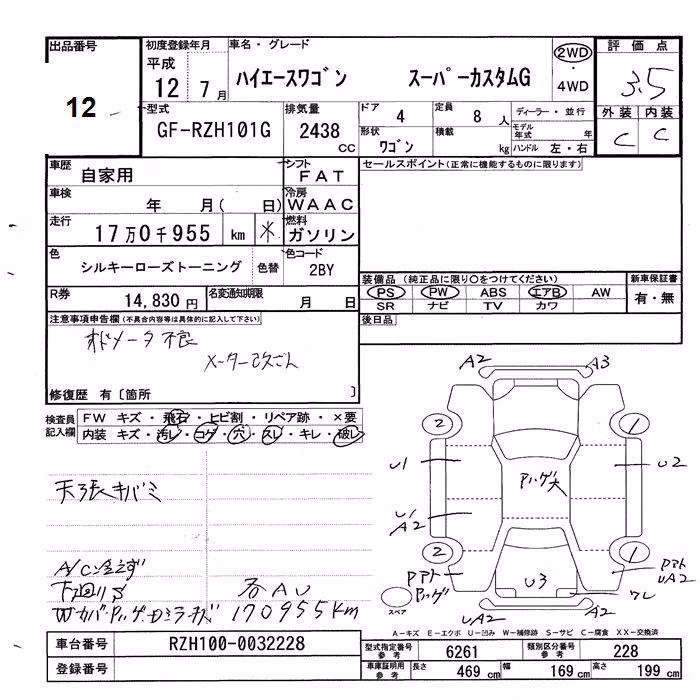 出品番号
12
初度登録年月
平成
12 7月
車名・グレード
ハイエースワゴン スーパーカスタムG
2WD
・
4WD
評価点
3.5
外装 内装
C C
型式
GF-RZH101G
排気量
2438
CC
ドア
4
定員
8 人
形状
ワゴン
積載
kg
ディーラー・並行
モデル年式 年
ハンドル 左・右
車歴
自家用
シフト
FAT
車検
年 月( 日)
冷房
WAAC
走行
17万0千955 km ＊
燃料
ガソリン
色
シルキーローズトーニング
色替
色コード
2BY
R券
14,830円
名変通知期限
月 日
セールスポイント(正常に機能するものに限ります)
装備品 (純正品に限り○をつけてください)
PS PW ABS エアB AW
SR ナビ TV カワ
新車保証書
有・無
後日品
注意事項申告欄(不具合内容等は具体的に記入して下さい)
オドメータ不良
メーター改ざん
修復歴 有〔箇所 〕
検査員記入欄
FW キズ・飛石・ヒビ割・リペア跡・×要
内装 キズ・汚レ・コゲ・穴・スレ・キレ・破レ
天張キバミ
A/C冷えず
下回りサビ
各AU
170955Km
A2 A3
2 1
U1 U2
U1
A2
2 1
U3
UA2
UA2 A2
スペア
A－キズ E－エクボ U－凹み W－補修跡 S－サビ C－腐食 XX－交換済
車台番号
RZH100-0032228
登録番号
型式指定番号
参考
6261
類別区分番号
参考
228
車庫証明用
参考
長さ 469 cm 幅 169 cm 高さ 199 cm